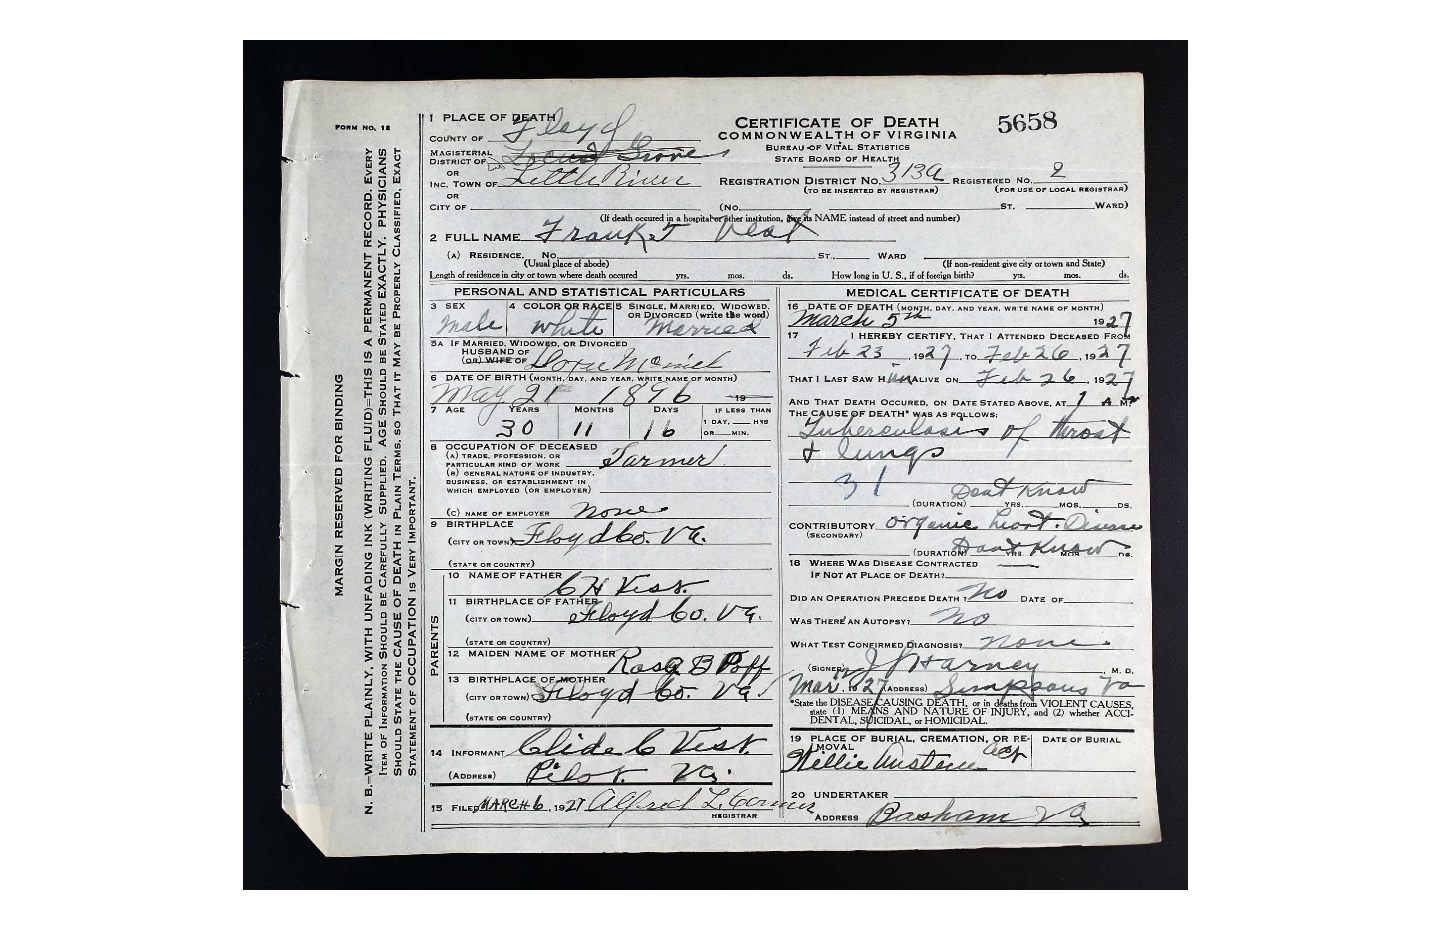 FORM NO. 12
MARGIN RESERVED FOR BINDING
N. B.—WRITE PLAINLY, WITH UNFADING INK (WRITING FLUID)—THIS IS A PERMANENT RECORD. EVERY
ITEM OF INFORMATION SHOULD BE CAREFULLY SUPPLIED. AGE SHOULD BE STATED EXACTLY. PHYSICIANS
SHOULD STATE THE CAUSE OF DEATH IN PLAIN TERMS, SO THAT IT MAY BE PROPERLY CLASSIFIED. EXACT
STATEMENT OF OCCUPATION IS VERY IMPORTANT.
1 PLACE OF DEATH
COUNTY OF Floyd
MAGISTERIAL DISTRICT OF Locust Grove
OR
INC. TOWN OF Little River
OR
CITY OF
CERTIFICATE OF DEATH
COMMONWEALTH OF VIRGINIA
BUREAU OF VITAL STATISTICS
STATE BOARD OF HEALTH
5658
REGISTRATION DISTRICT NO. 313A REGISTERED NO. 2
(TO BE INSERTED BY REGISTRAR) (FOR USE OF LOCAL REGISTRAR)
(NO. ST. WARD)
(If death occured in a hospital or other institution, give its NAME instead of street and number)
2 FULL NAME Frank T Vest
(A) RESIDENCE, NO. ST., WARD
(Usual place of abode) (If non-resident give city or town and State)
Length of residence in city or town where death occured yrs. mos. ds. How long in U. S., if of foreign birth? yrs. mos. ds.
PERSONAL AND STATISTICAL PARTICULARS
3 SEX 4 COLOR OR RACE 5 SINGLE, MARRIED, WIDOWED, OR DIVORCED (write the word)
Male White Married
5A IF MARRIED, WIDOWED, OR DIVORCED
HUSBAND OF
(OR) WIFE OF
6 DATE OF BIRTH (MONTH, DAY, AND YEAR, WRITE NAME OF MONTH)
May 21 1896 19
7 AGE YEARS MONTHS DAYS IF LESS THAN
1 DAY, HRS
OR MIN.
30 11 16
8 OCCUPATION OF DECEASED
(A) TRADE, PROFESSION, OR
PARTICULAR KIND OF WORK Farmer
(B) GENERAL NATURE OF INDUSTRY,
BUSINESS, OR ESTABLISHMENT IN
WHICH EMPLOYED (OR EMPLOYER)
(C) NAME OF EMPLOYER none
9 BIRTHPLACE
(CITY OR TOWN) Floyd Co. Va.
(STATE OR COUNTRY)
PARENTS
10 NAME OF FATHER C H Vest.
11 BIRTHPLACE OF FATHER
(CITY OR TOWN) Floyd Co. Va.
(STATE OR COUNTRY)
12 MAIDEN NAME OF MOTHER Rosa B Poff
13 BIRTHPLACE OF MOTHER
(CITY OR TOWN) Floyd Co. Va
(STATE OR COUNTRY)
14 INFORMANT Clide C Vest.
(ADDRESS) Pilot. Va.
15 FILED MARCH 6, 1927 Alfred L.
REGISTRAR
MEDICAL CERTIFICATE OF DEATH
16 DATE OF DEATH (MONTH, DAY, AND YEAR, WRITE NAME OF MONTH)
March 5th 1927
17 I HEREBY CERTIFY, THAT I ATTENDED DECEASED FROM
Feb 23, 1927, TO Feb 26, 1927
THAT I LAST SAW HIM ALIVE ON Feb 26, 1927
AND THAT DEATH OCCURED, ON DATE STATED ABOVE, AT 1 A M.
THE CAUSE OF DEATH* WAS AS FOLLOWS:
Tuberculosis of throat
& lungs
31
Dont Know
(DURATION) YRS. MOS. DS.
CONTRIBUTORY Organic heart. Disease
(SECONDARY)
(DURATION) Dont Know YRS. MOS. DS.
18 WHERE WAS DISEASE CONTRACTED
IF NOT AT PLACE OF DEATH?
DID AN OPERATION PRECEDE DEATH? No DATE OF
WAS THERE AN AUTOPSY? No
WHAT TEST CONFIRMED DIAGNOSIS? none
(SIGNED) J J Harney M. D.
Mar. 1927 (ADDRESS) Simpsons Va
*State the DISEASE CAUSING DEATH, or in deaths from VIOLENT CAUSES,
state (1) MEANS AND NATURE OF INJURY, and (2) whether ACCI-
DENTAL, SUICIDAL, or HOMICIDAL.
19 PLACE OF BURIAL, CREMATION, OR RE- DATE OF BURIAL
MOVAL
20 UNDERTAKER
ADDRESS Basham Va